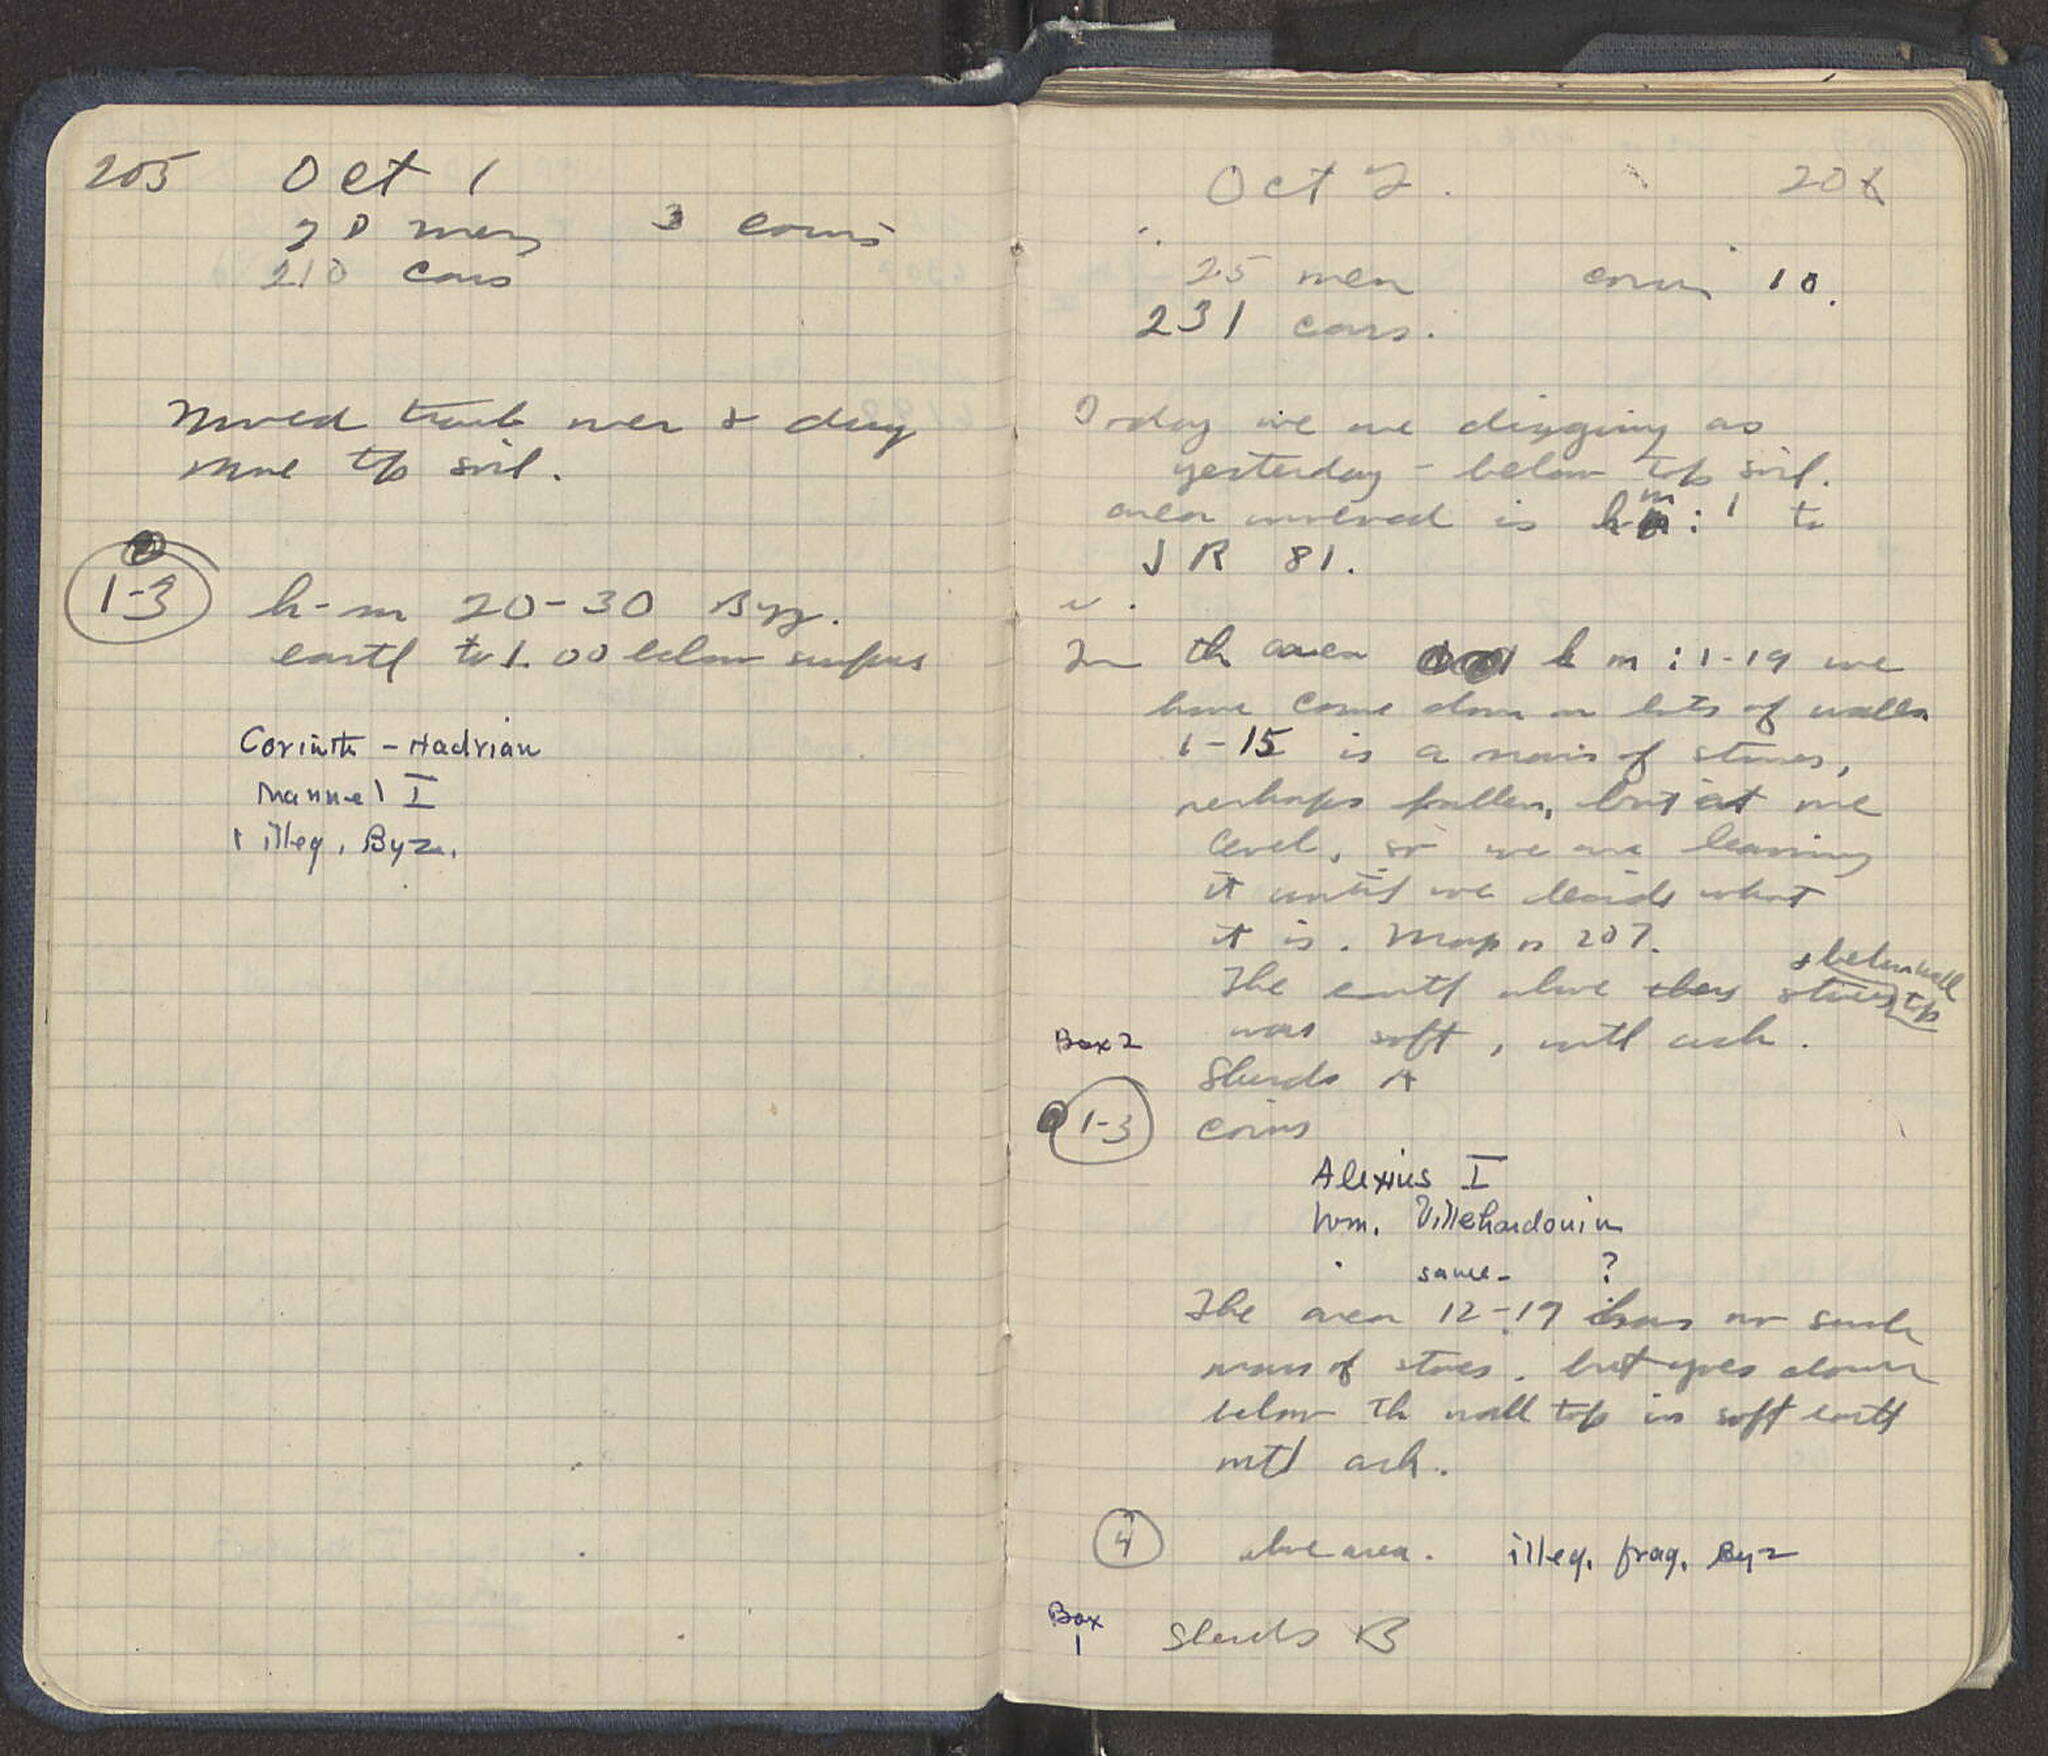 205 Oct 1
20 men 3 coins
210 cars
Moved track over & dug
more top soil.
1-3 h-m 20-30 Byz.
earth to 1.00 below surface
Corinth - Hadrian
Manuel I
1 illeg. Byz.
Oct 2. 206
25 men coins 10.
231 cars.
Today we are digging as
yesterday - below top soil.
area involved is h m : 1 to
J R 81.
In the area h m : 1-19 we
have come down on lots of walls
1-15 is a mass of stones,
perhaps fallen, but at one
level, so we are leaving
it until we decide what
it is. Map p 207.
The earth above stones & below wall top
was soft, with ash.
Box 2
Sherds A
1-3 coins
Alexius I
Wm. Villehardouin
same - ?
The area 12-19 has no such
mass of stones, but goes down
below the wall top in soft earth
with ash.
4 above area. illeg. frag. Byz
Box 1 Sherds B